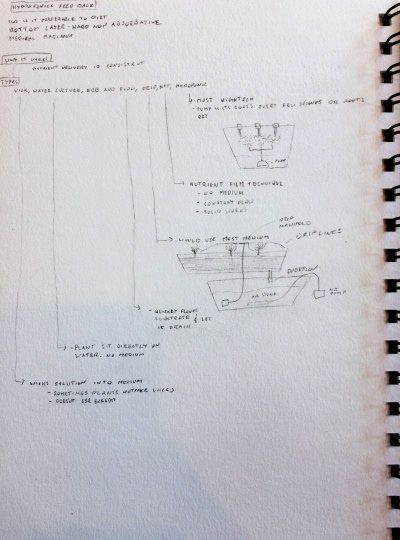 HYDROPONICS FEED BACK
WHY IS IT PREFERABLE TO DIRT
BOTTOM LAYER - HARD NON ABSORBATIVE
MEDICAL
WHY IT WORKS
NUTRIENT DELIVERY IS CONSISTENT
TYPES
WICK, WATER CULTURE, EBB AND FLOW, DRIP, NFT, AEROPONIC
MOST HIGHTECH
- PUMP MISTS ROOTS EVERY FEW SECONDS OR ROOTS
DRY
PUMP
NUTRIENT FILM TECHNIQUE
- NO MEDIUM
- CONSTANT FLOW
DRIP
MANIFOLD
DRIP LINES
WOULD USE MOST MEDIUM
OVERFLOW
AIR STONE
AIR
PUMP
FLOODS
SUBSTRATE & LET
IT DRAIN
- PLANT SIT DIRECTLY ON
WATER. NO MEDIUM
WICKS SOLUTION INTO MEDIUM
- SOMETIMES PLANTS OUTPACE WICKS
- DOESNT